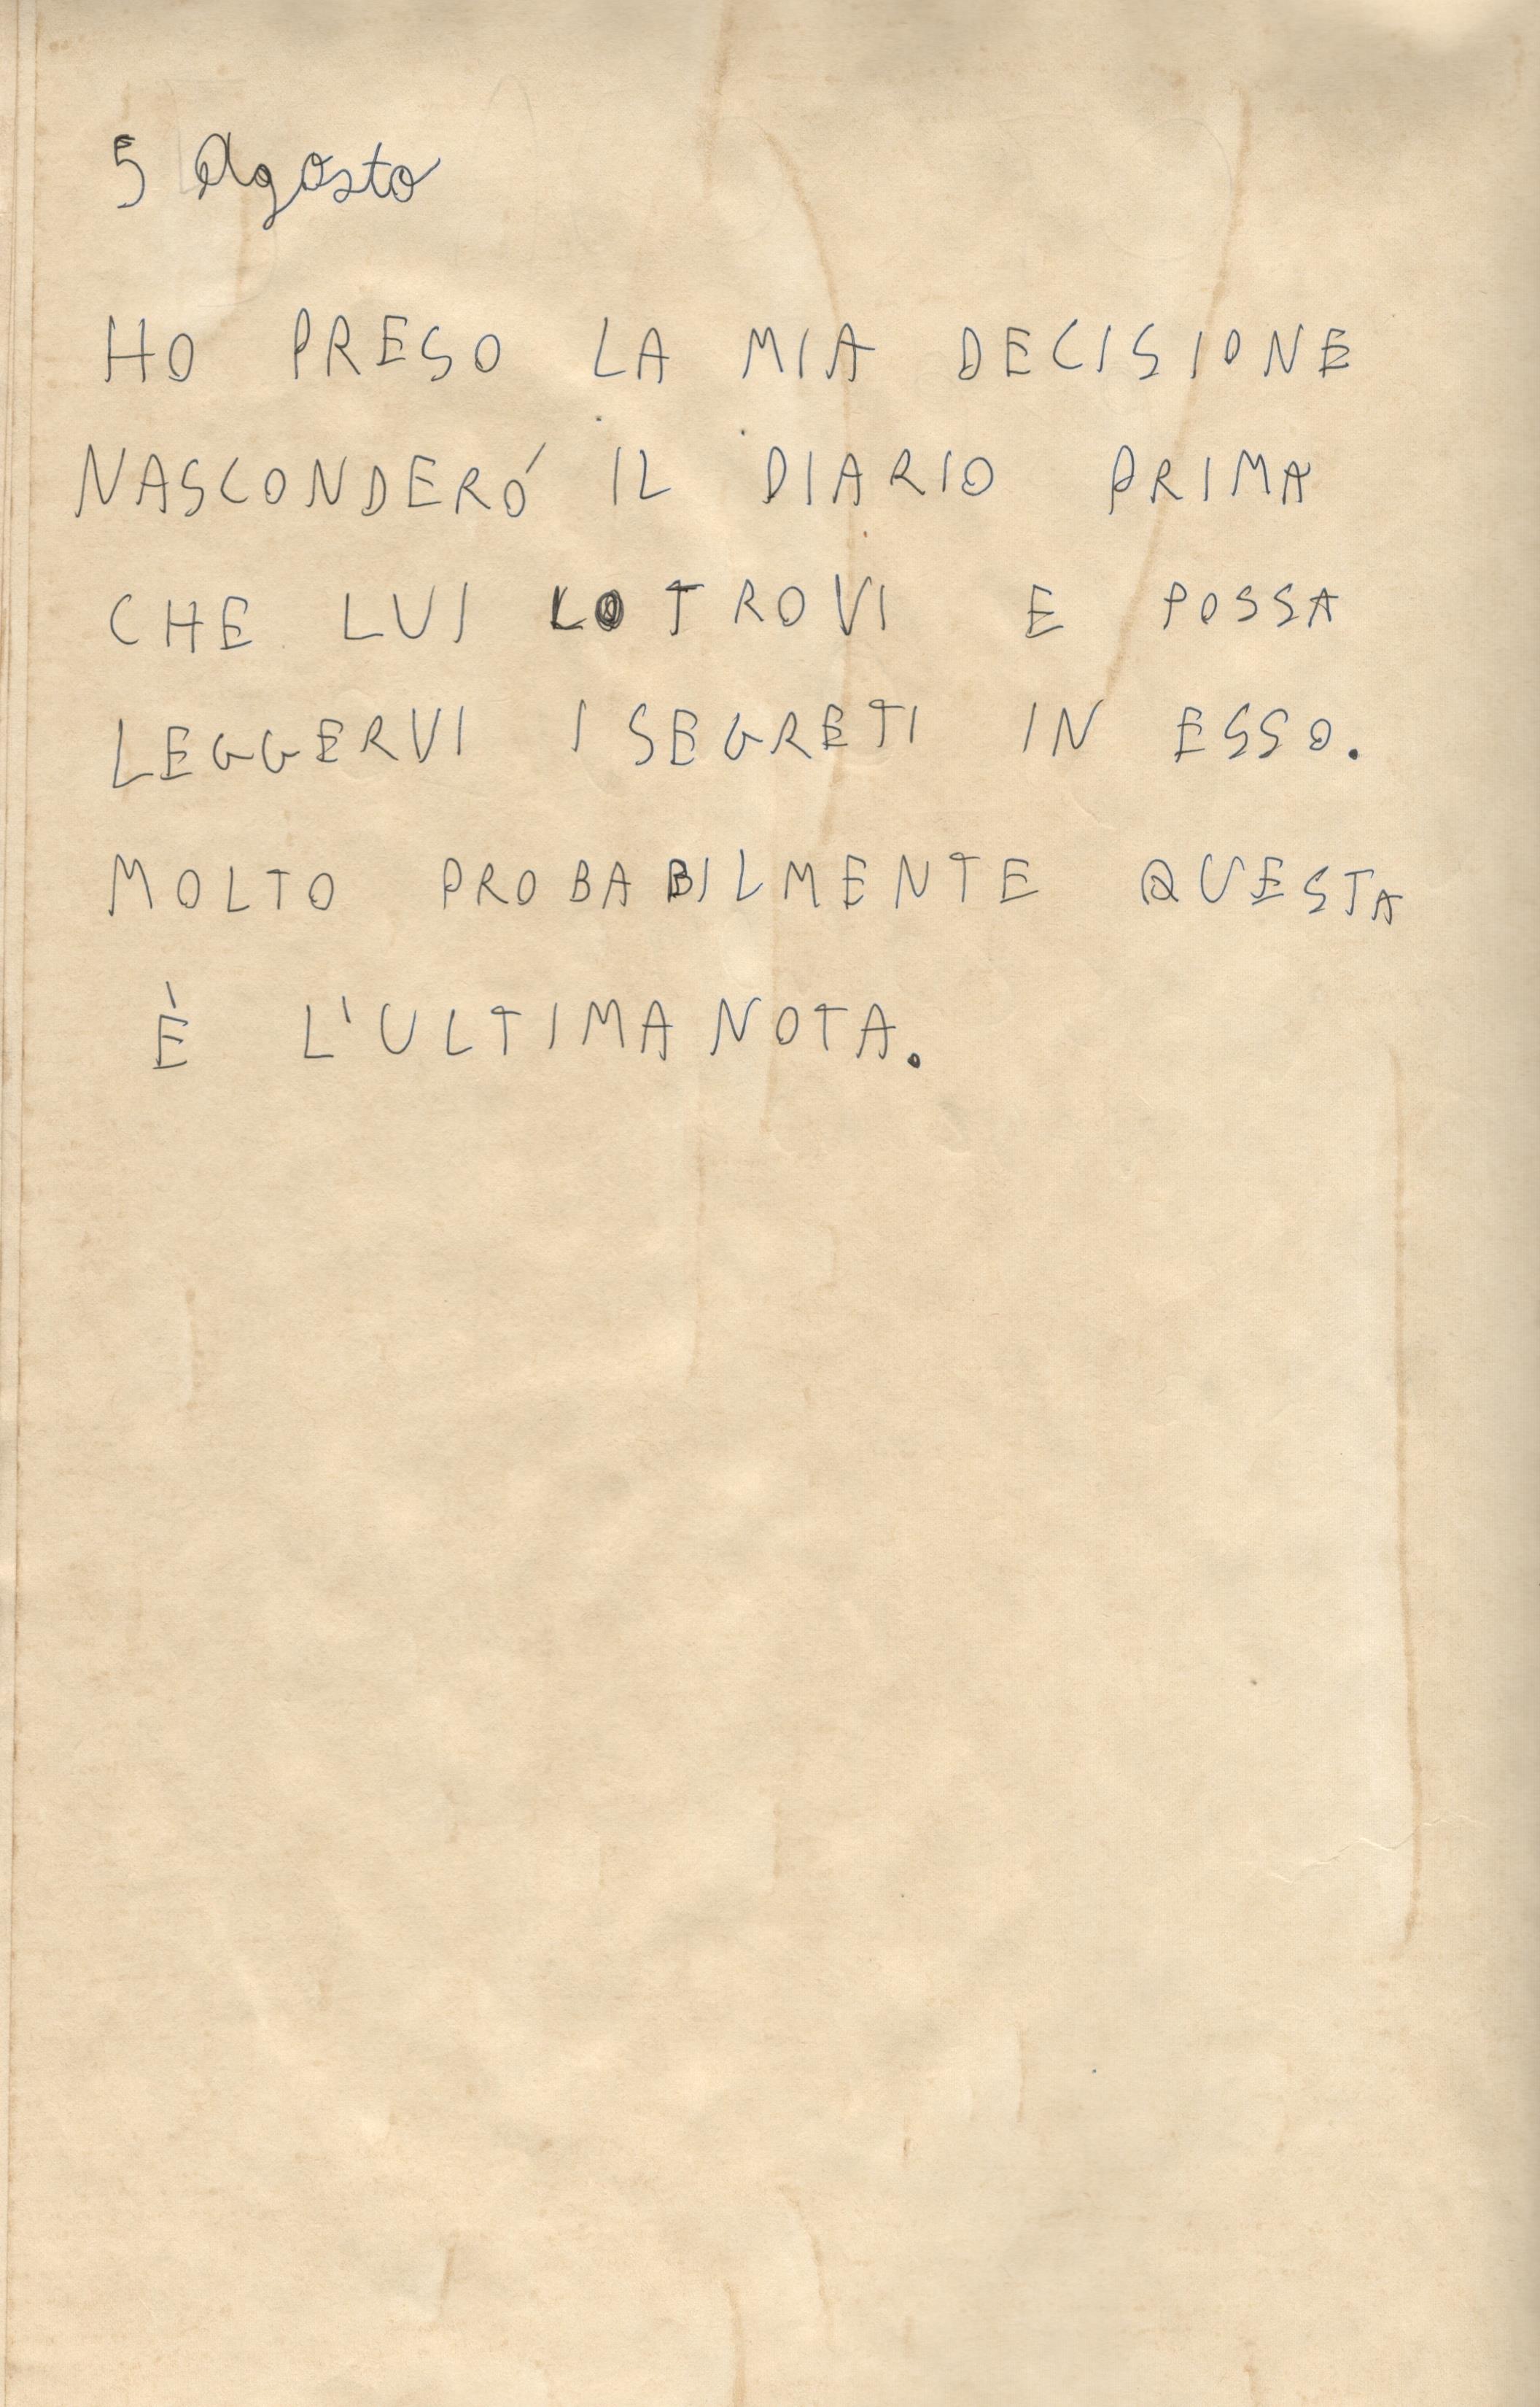 5 Agosto
HO PRESO LA MIA DECISIONE
NASCONDERÓ IL DIARIO PRIMA
CHE LUI LO TROVI E POSSA
LEGGERVI I SEGRETI IN ESSO.
MOLTO PROBABILMENTE QUESTA
È L'ULTIMA NOTA.